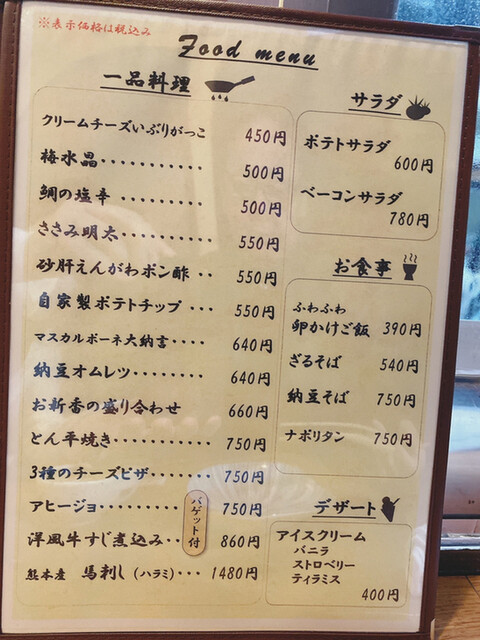 ※表示価格は税込み
Food menu
一品料理
クリームチーズいぶりがっこ 450円
梅水晶・・・・・・・・・・・ 500円
鯛の塩辛 ・・・・・・・・・ 500円
ささみ明太・・・・・・・・・・ 550円
砂肝えんがわポン酢 ・・ 550円
自家製ポテトチップ ・・・ 550円
マスカルポーネ大納言・・・・ 640円
納豆オムレツ・・・・・・・ 640円
お新香の盛り合わせ 660円
とん平焼き・・・・・・・・・・ 750円
3種のチーズピザ・・・・・ 750円
アヒージョ・・・・・・・・ 750円
洋風牛すじ煮込み・・ 860円
バゲット付
熊本産 馬刺し(ハラミ)・・・ 1480円
サラダ
ポテトサラダ
600円
ベーコンサラダ
780円
お食事
ふわふわ
卵かけご飯 390円
ざるそば 540円
納豆そば 750円
ナポリタン 750円
デザート
アイスクリーム
バニラ
ストロベリー
ティラミス
400円